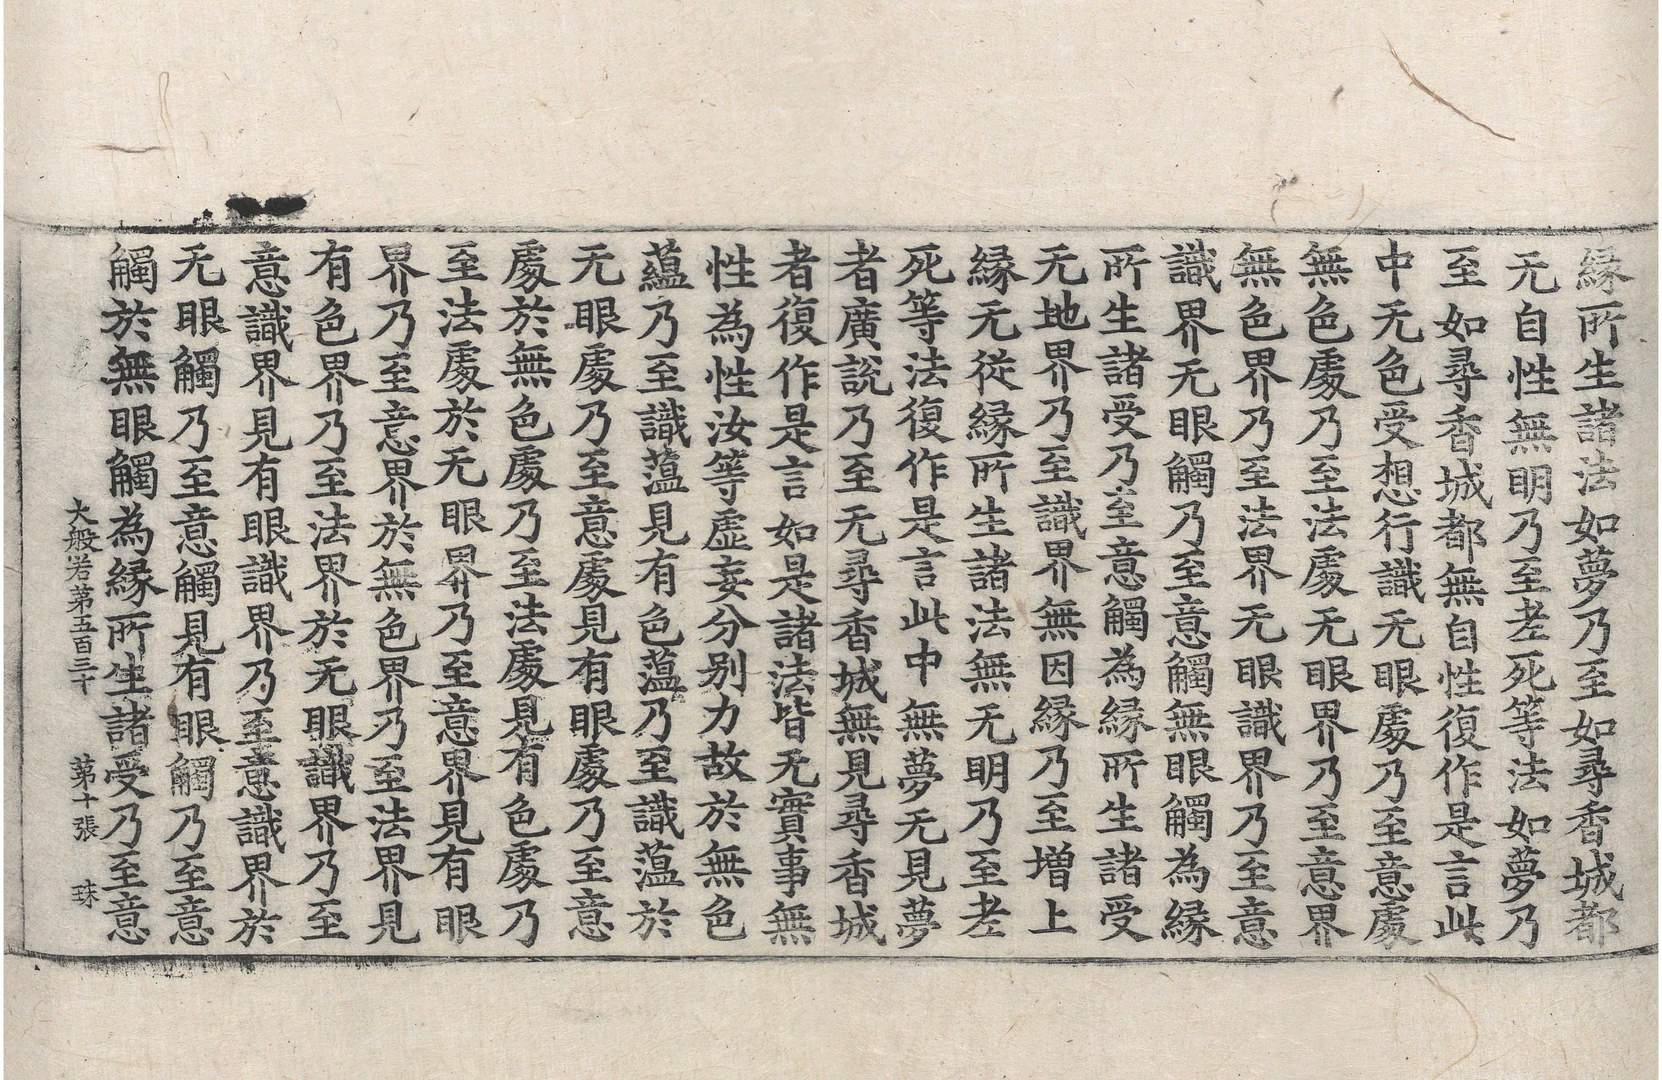 縁所生諸法如夢乃至如尋香城都
无自性無明乃至老死等法如夢乃
至如尋香城都無自性復作是言此
中无色受想行識无眼處乃至意處
無色處乃至法處无眼界乃至意界
無色界乃至法界无眼識界乃至意
識界无眼觸乃至意觸無眼觸為縁
所生諸受乃至意觸為縁所生諸受
无地界乃至識界無因縁乃至增上
縁无從縁所生諸法無无明乃至老
死等法復作是言此中無夢无見夢
者廣說乃至无尋香城無見尋香城
者復作是言如是諸法皆无實事無
性為性汝等虛妄分别力故於無色
蘊乃至識蘊見有色蘊乃至識蘊於
无眼處乃至意處見有眼處乃至意
處於無色處乃至法處見有色處乃
至法處於无眼界乃至意界見有眼
界乃至意界於無色界乃至法界見
有色界乃至法界於无眼識界乃至
意識界見有眼識界乃至意識界於
无眼觸乃至意觸見有眼觸乃至意
觸於無眼觸為縁所生諸受乃至意
大般若第五百三十 第十張 珠